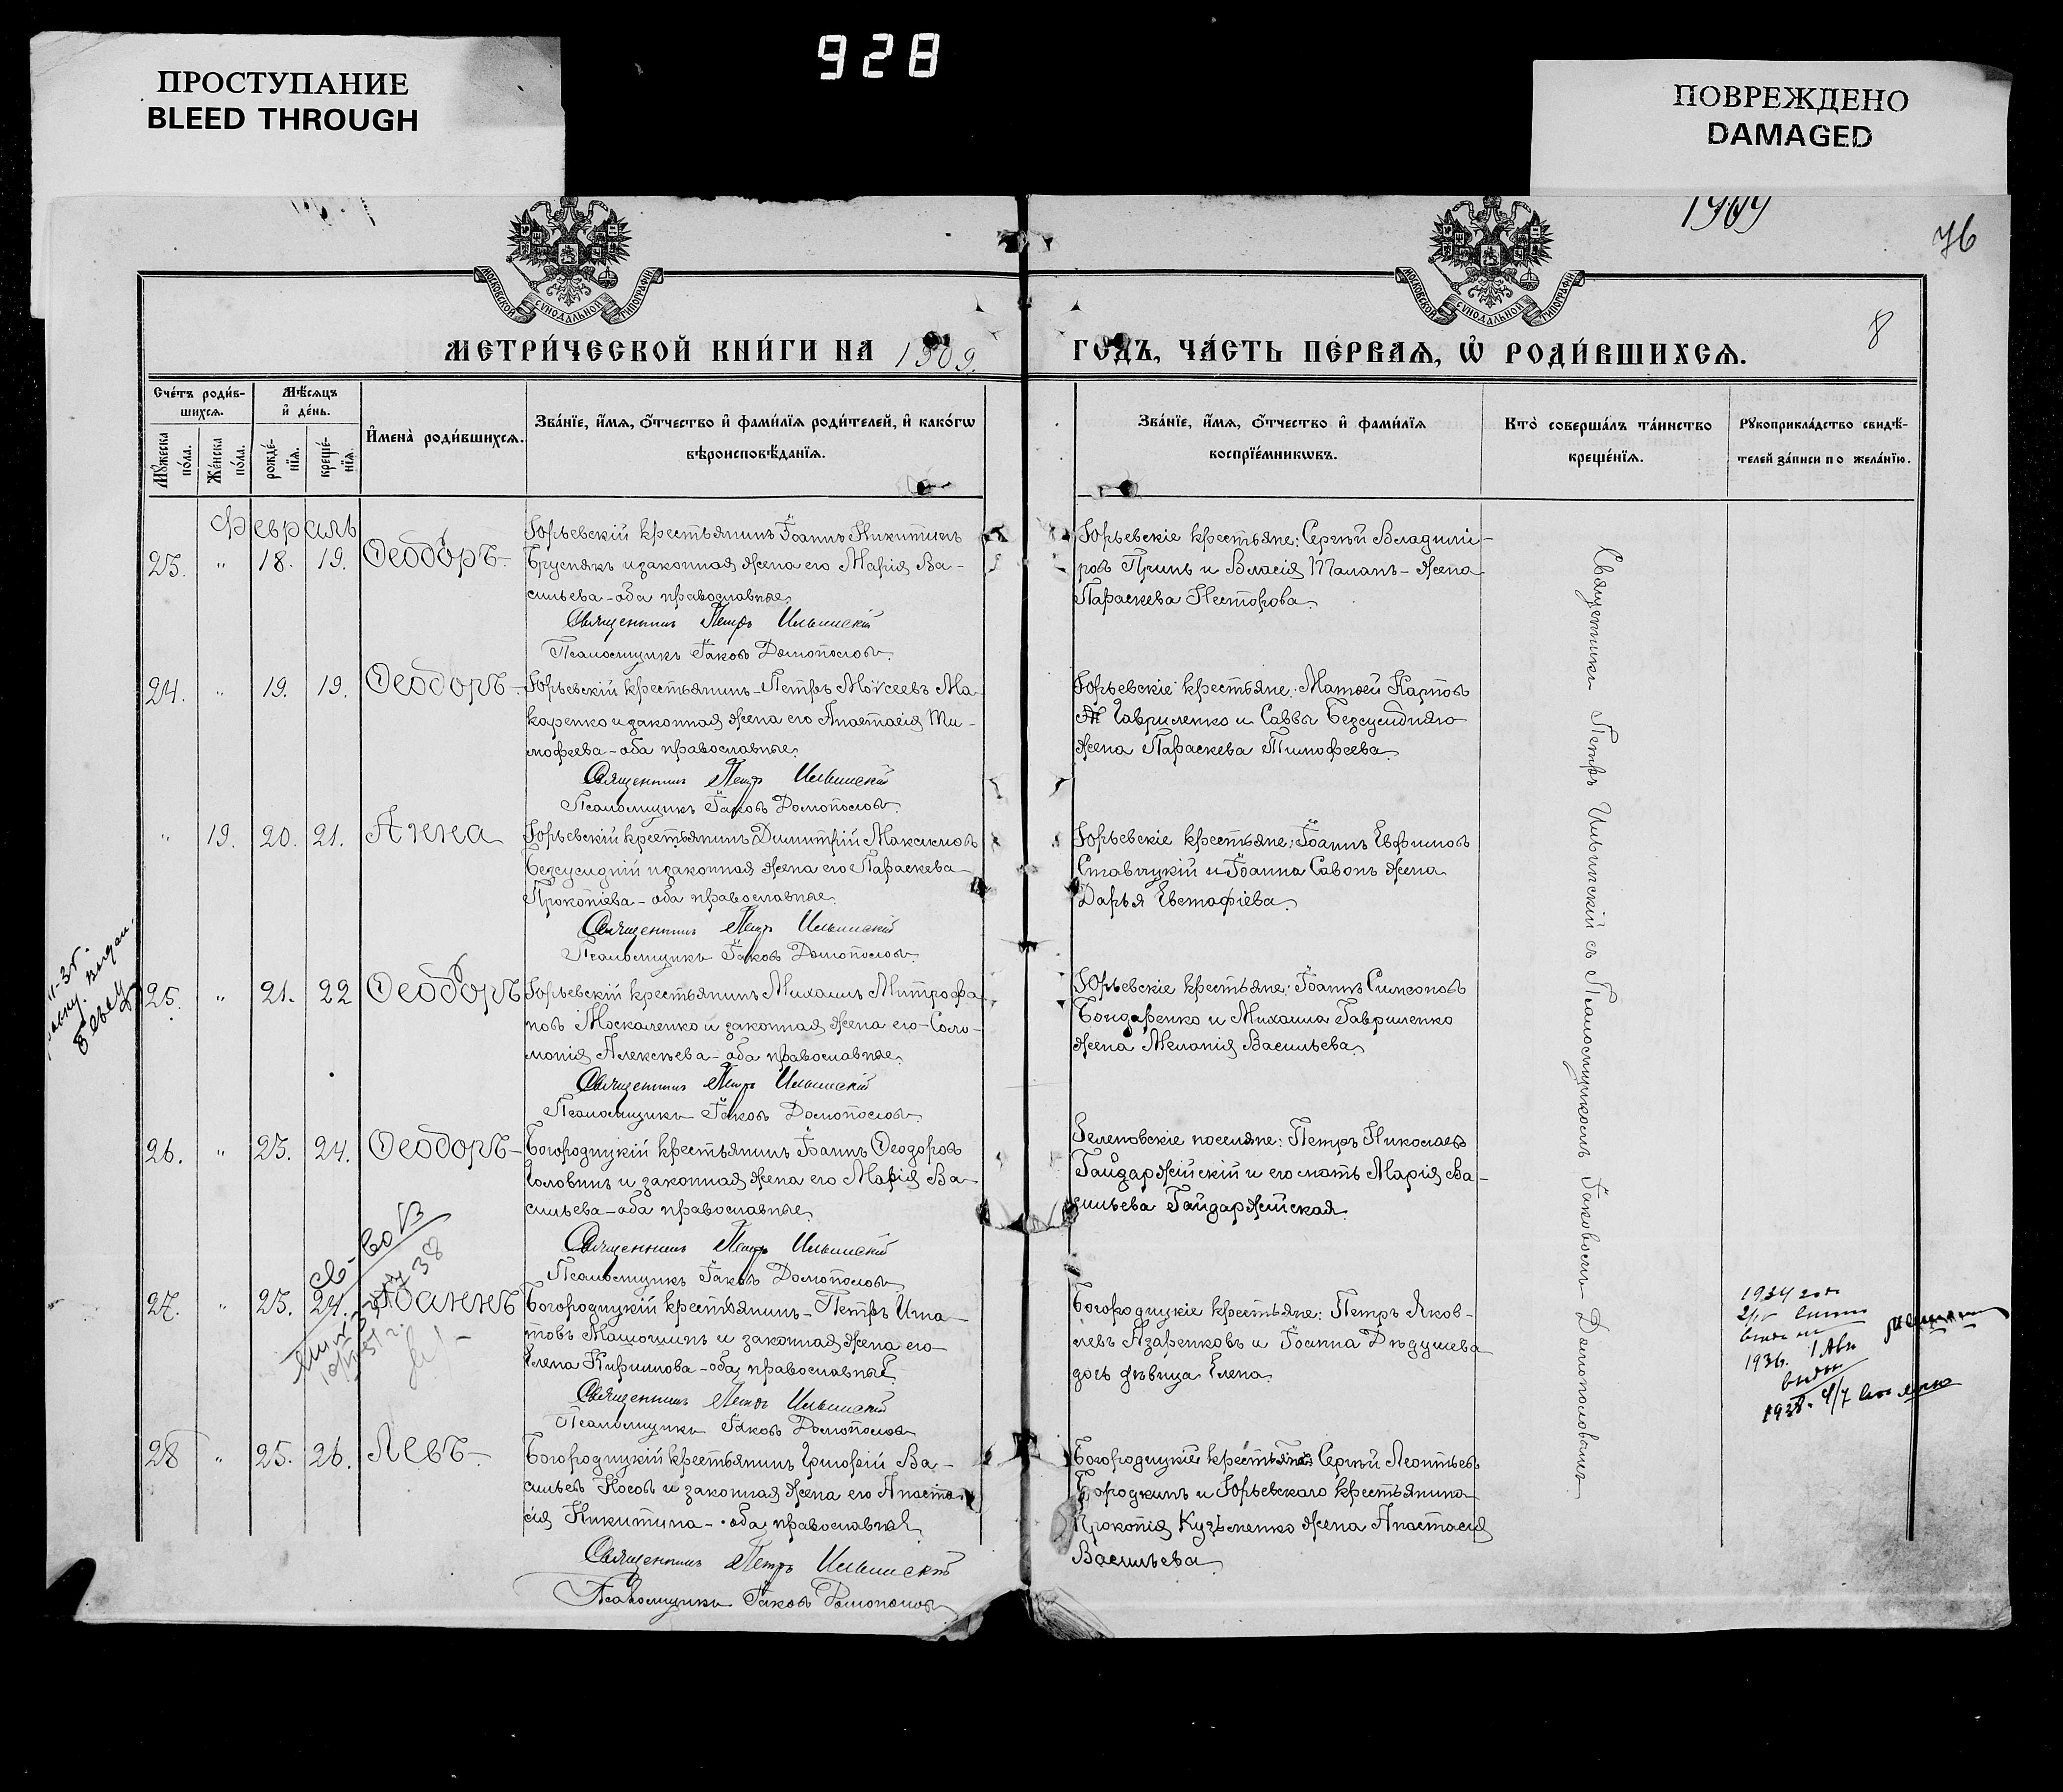 928
ПРОСТУПАНИЕ
BLEED THROUGH
ПОВРЕЖДЕНО
DAMAGED
1909
76
8
МОСКОВСКОЙ СѴНОДАЛЬНОЙ ТИПОГРАФІИ
МОСКОВСКОЙ СѴНОДАЛЬНОЙ ТИПОГРАФІИ
МЕТРИ́ЧЕСКОЙ КНИ́ГИ НА 1909.
ГОДЪ, ЧА́СТЬ ПЕ́РВАЯ, Ѡ҆ РОДИ́ВШИХСЯ.
Сче́тъ роди́в-
шихся.
Мꙋ́жеска по́ла.
Же́нска по́ла.
Мѣ́сяцъ
и҆ де́нь.
рожде́-
нїя.
креще́-
нїя.
И҆мена̀ роди́вшихся.
Зва́нїе, и҆́мя, ѻ҆́тчество и҆ фами́лїя роди́телей, и҆ како́гѡ
вѣроисповѣ́данїя.
Зва́нїе, и҆́мя, ѻ҆́тчество и҆ фами́лїя
воспрїе́мникѡвъ.
Кто̀ соверша́лъ та́инство
креще́нїя.
Рꙋкоприкла́дство свидѣ́-
телей за́писи по жела́нїю.
Февраль
23. " 18. 19. Ѳеодоръ
Юрьевскій крестьянинъ Іоаннъ Никитинъ
Бруснякъ и законная жена его Марія Ва-
сильева - оба православные.
Священникъ Петръ Ильинскій
Псаломщикъ Іаковъ Домополовъ
Юрьевскіе крестьяне: Сергѣй Владимі-
ровъ Гринь и Власія Таланъ - жена
Параскева Несторова.
24. " 19. 19. Ѳеодоръ
Юрьевскій крестьянинъ - Петръ Моѵсеевъ Ма-
каренко и законная жена его Анастасія Ти-
мофеева - оба православные.
Священникъ Петръ Ильинскій
Псаломщикъ Іаковъ Домополовъ
Юрьевскіе крестьяне: Матѳей Карповъ
Гавриленко и Саввы Безсуидняго
жена Параскева Тимофеева.
" 19. 20. 21. Анна
Юрьевскій крестьянинъ Димитрій Максимовъ
Безсуидній и законная жена его Параскева
Прокопіева - оба православные.
Священникъ Петръ Ильинскій
Псаломщикъ Іаковъ Домополовъ
Юрьевскіе крестьяне: Іоаннъ Евфимовъ
Ставицкій и Іоанна Савонъ жена
Дарья Евстафіева.
25. " 21. 22 Ѳеодоръ
Юрьевскій крестьянинъ Михаилъ Митрофа-
новъ Москаленко и законная жена его - Соло-
монія Алексѣева - оба православные.
Священникъ Петръ Ильинскій
Псаломщикъ Іаковъ Домополовъ
Юрьевскіе крестьяне: Іоаннъ Симеоновъ
Бондаренко и Михаила Гавриленко
жена Меланія Васильева.
26. " 23. 24. Ѳеодоръ
Богородицкій крестьянинъ Іоаннъ Ѳеодоровъ
Головинъ и законная жена его Марія Ва-
сильева - оба православные.
Священникъ Петръ Ильинскій
Псаломщикъ Іаковъ Домополовъ
Зеленовскіе поселяне: Петръ Николаевъ
Гайдаржійскій и его мать Марія Ва-
сильева Гайдаржійская.
27. " 23. 24. Іоаннъ
Богородицкій крестьянинъ - Петръ Игна-
товъ Машошинъ и законная жена его
Елена Кириллова - оба православные.
Священникъ Петръ Ильинскій
Псаломщикъ Іаковъ Домополовъ
Богородицкіе крестьяне: Петръ Яков-
левъ Азаренковъ и Іоанна Дѣдушева
дочь дѣвица Елена.
28 " 25. 26. Левъ
Богородицкій крестьянинъ Григорій Ва-
сильевъ Носовъ и законная жена его Анаста-
сія Никитина - оба православныя.
Священникъ Петръ Ильинскій
Псаломщикъ Іаковъ Домополовъ
Богородицкіе крестьяне: Сергѣй Леонтьевъ
Бородкинъ и Юрьевскаго крестьянина
Прокопія Кузьменко жена Анастасія
Васильева.
Священникъ Петръ Ильинскій съ Псаломщикомъ Іаковомъ Домополовымъ
1934
1936. 1 Авг
1938. 4/7